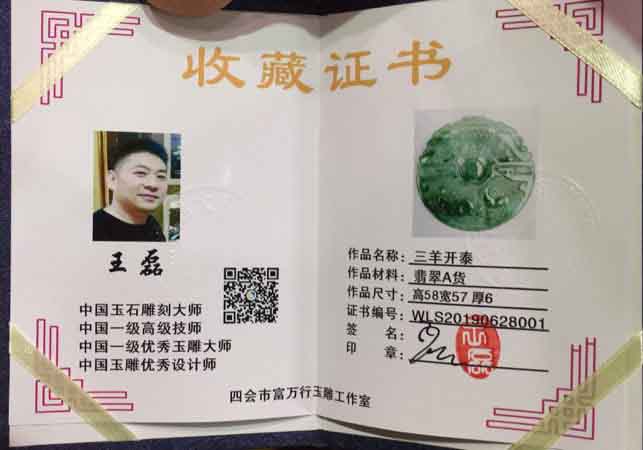 收藏证书
王磊
中国玉石雕刻大师
中国一级高级技师
中国一级优秀玉雕大师
中国玉雕优秀设计师
作品名称：三羊开泰
作品材料：翡翠A货
作品尺寸：高58宽57 厚6
证书编号：WLS20190628001
签 名：
印 章：
四会市富万行玉雕工作室